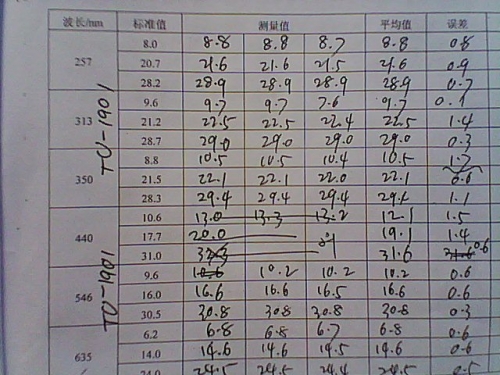 波长/nm 标准值 测量值 平均值 误差
8.0 8.8 8.8 8.7 8.8 0.8
257 20.7 21.6 21.6 21.5 21.6 0.9
28.2 28.9 28.9 28.9 28.9 0.7
9.6 9.7 9.7 9.7 0.1
313 21.2 22.5 22.5 22.4 22.5 1.4
28.7 29.0 29.0 29.0 29.0 0.3
TU-1901
8.8 10.5 10.5 10.4 10.5 1.7
350 21.5 22.1 22.1 22.0 22.1 0.6
28.3 29.4 29.4 29.4 29.4 1.1
10.6 13.0 13.3 13.2 12.1 1.5
440 17.7 20.0 19.1 1.4
31.0 31.6 0.6
TU-1901
9.6 10.6 10.2 10.2 10.2 0.6
546 16.0 16.6 16.6 16.5 16.6 0.6
30.5 30.8 30.8 30.8 30.8 0.3
6.2 6.8 6.8 6.7 6.8 0.6
635 14.0 14.6 14.6 14.5 14.6 0.6
24.0 24.5 24.5 24.4 24.5 0.5